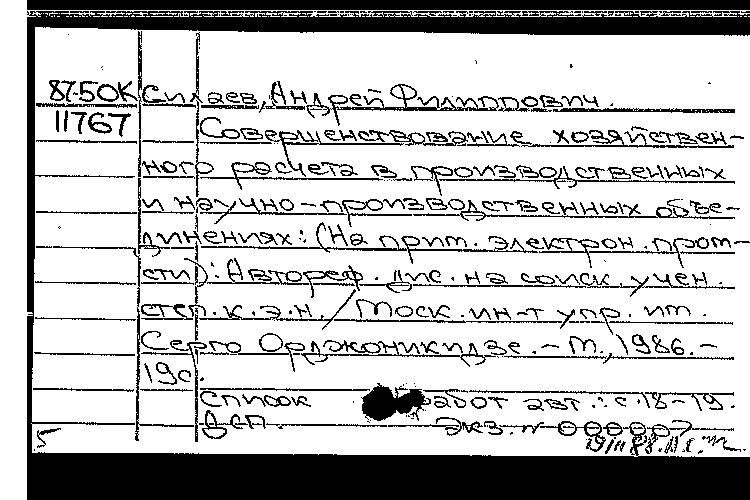 87-50К Силаев, Андрей Филиппович.
11767 Совершенствование хозяйствен-
ного расчета в производственных
и научно-производственных объе-
динениях: (На прим. электрон. пром-
сти): Автореф. дис. на соиск. учен.
степ. к.э.н. / Моск. ин-т упр. им.
Серго Орджоникидзе. - М., 1986. -
19с.
Список работ авт.: с.18-19.
Дсп. Экз. № 000007
5